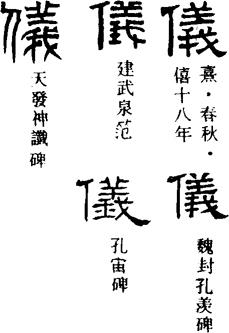 儀
熹·春秋·
僖十八年
儀
建武泉范
儀
天發神讖碑
儀
魏封孔羨碑
儀
孔宙碑